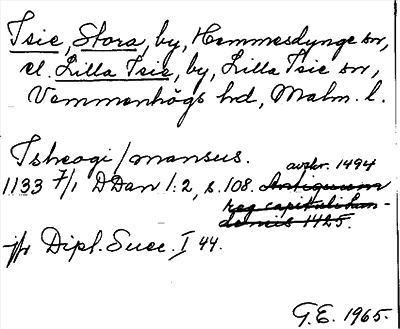 Tsie, Stora, by, Hemmesdynge sn,
el. Lilla Tsie, by, Lilla Tsie sn,
Vemmenhögs hd, Malm. l.
Tsheogi / mansus.
avskr. 1494
1133 7/1 DDan 1:2, s. 108. Antiquum
reg capituli lun-
densis 1425.
jfr Dipl. Suec. I 44.
G.E. 1965.